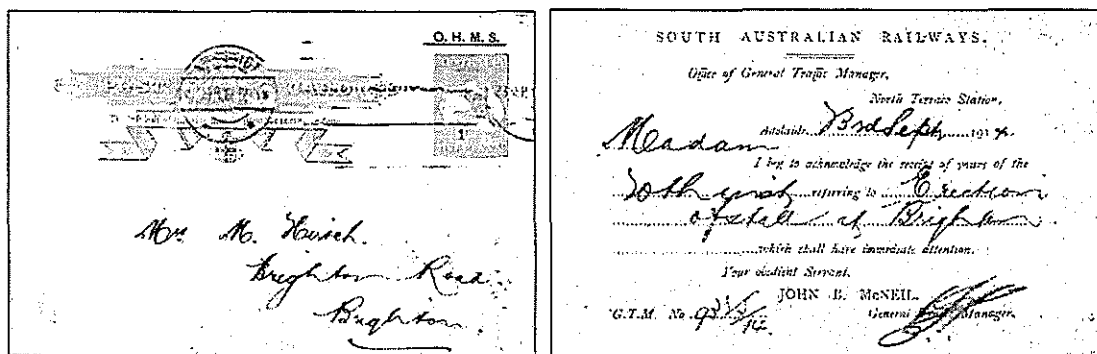 O. H. M. S.
1
Mrs M. Hirsch.
Brighton Road
Brighton.
SOUTH AUSTRALIAN RAILWAYS.
Office of General Traffic Manager,
North Terrace Station,
Adelaide 3rd Sept 1914.
Madam
I beg to acknowledge the receipt of yours of the
referring to Erection
of stall at Brighton
which shall have immediate attention.
Your obedient Servant,
JOHN B. McNEIL.
General Traffic Manager.
G.T.M. No.